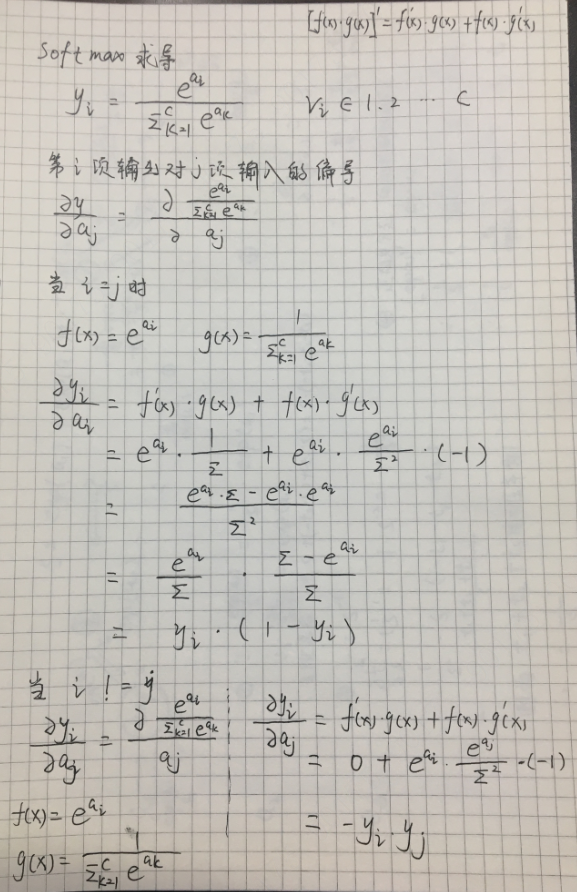 [f(x)·g(x)]' = f'(x)·g(x) + f(x)·g'(x)
Softmax 求导
y_i = e^{a_i} / Σ_{k=1}^{C} e^{a_k}    ∀i ∈ 1.2 ··· C
第 i 项输出对 j 项输入的偏导
∂y / ∂a_j = ∂ (e^{a_i} / Σ_{k=1}^{C} e^{a_k}) / ∂ a_j
当 i = j 时
f(x) = e^{a_i}    g(x) = 1 / Σ_{k=1}^{C} e^{a_k}
∂y_i / ∂a_i = f'(x)·g(x) + f(x)·g'(x)
= e^{a_i} · 1/Σ + e^{a_i} · e^{a_i}/Σ² · (-1)
= (e^{a_i}·Σ - e^{a_i}·e^{a_i}) / Σ²
= e^{a_i}/Σ · (Σ - e^{a_i})/Σ
= y_i · (1 - y_i)
当 i != j
∂y_i / ∂a_j = ∂ (e^{a_i} / Σ_{k=1}^{C} e^{a_k}) / a_j
f(x) = e^{a_i}
g(x) = 1 / Σ_{k=1}^{C} e^{a_k}
∂y_i / ∂a_j = f'(x)·g(x) + f(x)·g'(x)
= 0 + e^{a_i} · e^{a_j}/Σ² ·(-1)
= -y_i·y_j